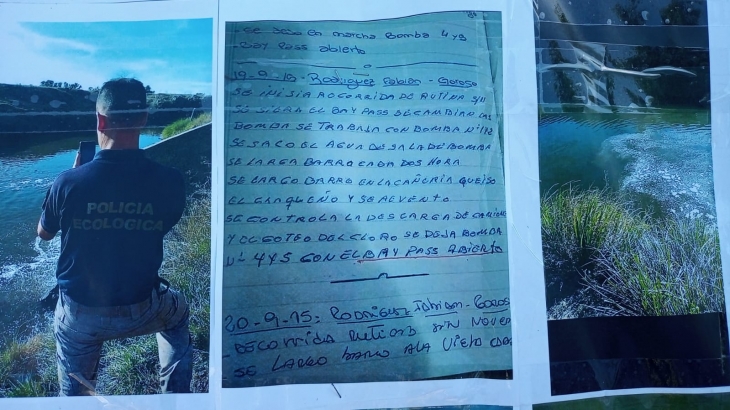 POLICIA
ECOLOGICA
se dejo en marcha Bomba 4 y 3
Bay Pass abierto
19-9-15- Rodriguez Fabian - Goroso
SE INISIA RECORRIDA DE RUTINA S/N
EL BAY PASS SE CAMBIAN LAS
BOMBA SE TRABAJA CON BOMBA Nº 1 Y 2
SE SACO EL AGUA DE SALA DE BOMBA
SE LARGA BARRO CADA DOS HORA
SE LARGO BARRO EN LA CAÑERIA QUE ISO
EL CAÑO Y SE
SE CONTROLA LA DESCARGA DE
Y EL GOTEO DEL CLORO SE DEJA BOMBA
Nº 4 Y 5 CON EL BAY PASS ABIERTO
20-9-15: RODRIGUEZ Fabian - Goroso
- RECORRIDA Rutina SIN NOVE
SE LARGO BARRO A LA VIETO